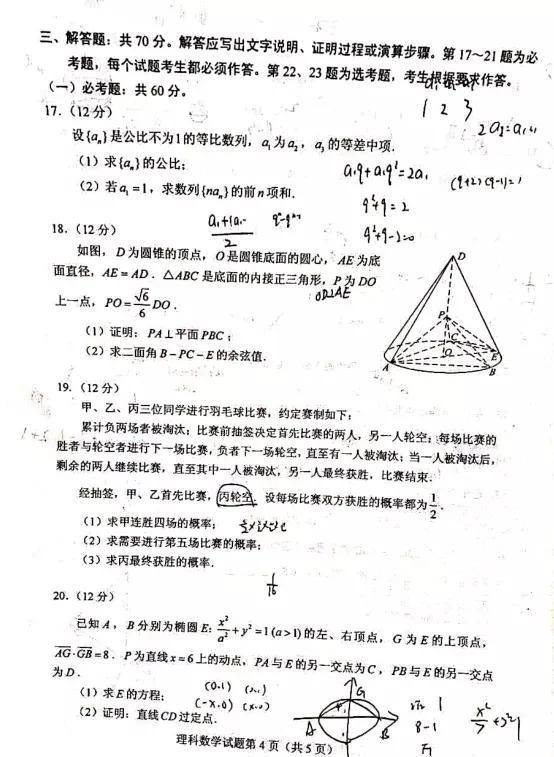 三、解答题：共 70 分。解答应写出文字说明、证明过程或演算步骤。第 17～21 题为必
考题，每个试题考生都必须作答。第 22、23 题为选考题，考生根据要求作答。
（一）必考题：共 60 分。
1 2 3
17.（12 分）
设{aₙ}是公比不为1的等比数列，a₁为a₂，a₃的等差中项.
（1）求{aₙ}的公比；
a₁q+a₁q²=2a₁
（2）若a₁=1，求数列{naₙ}的前n项和.
q²+q=2
q²+q-2=0
18.（12 分）
如图，D为圆锥的顶点，O是圆锥底面的圆心，AE为底
面直径，AE=AD．△ABC是底面的内接正三角形，P为DO
上一点，PO=√6/6 DO．
OD⊥AE
（1）证明：PA⊥平面PBC；
（2）求二面角B-PC-E的余弦值.
D
P
C
O
A
E
B
19.（12 分）
甲、乙、丙三位同学进行羽毛球比赛，约定赛制如下：
累计负两场者被淘汰；比赛前抽签决定首先比赛的两人，另一人轮空；每场比赛的
胜者与轮空者进行下一场比赛，负者下一场轮空，直至有一人被淘汰；当一人被淘汰后，
剩余的两人继续比赛，直至其中一人被淘汰，另一人最终获胜，比赛结束.
经抽签，甲、乙首先比赛，丙轮空．设每场比赛双方获胜的概率都为1/2．
（1）求甲连胜四场的概率；
（2）求需要进行第五场比赛的概率；
（3）求丙最终获胜的概率.
1/16
20.（12 分）
已知A，B分别为椭圆E：x²/a²+y²=1(a>1)的左、右顶点，G为E的上顶点，
AG·GB=8．P为直线x=6上的动点，PA与E的另一交点为C，PB与E的另一交点
为D．
（1）求E的方程；
（2）证明：直线CD过定点.
(0.1)
(-x.0) (x.0)
G
A
B
8-1
理科数学试题第 4 页（共 5 页）